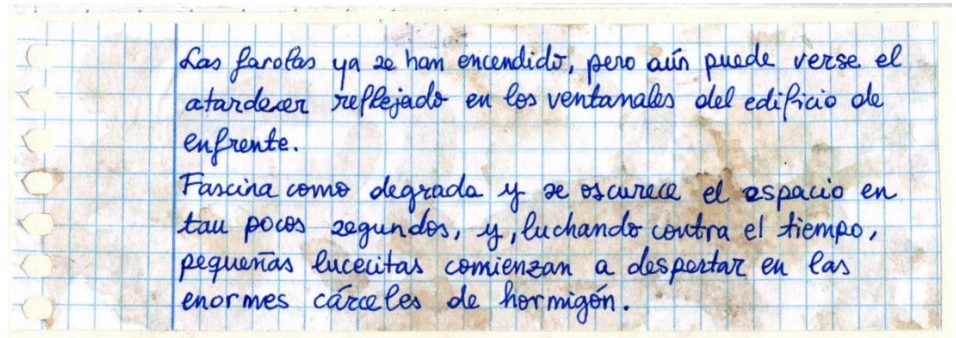 Las farolas ya se han encendido, pero aún puede verse el
atardecer reflejado en los ventanales del edificio de
enfrente.
Fascina como degrada y se oscurece el espacio en
tan pocos segundos, y, luchando contra el tiempo,
pequeñas lucecitas comienzan a despertar en las
enormes cárceles de hormigón.